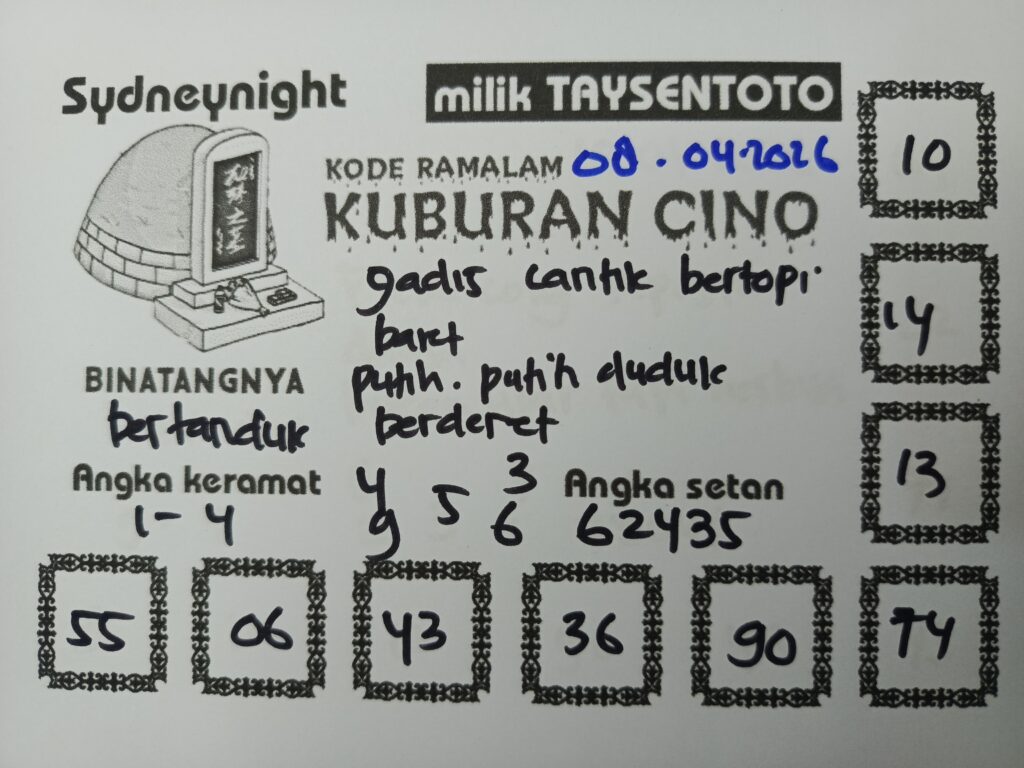 Sydneynight
milik TAYSENTOTO
KODE RAMALAM 08.04.2026
KUBURAN CINO
gadis cantik bertopi
baret
putih. putih duduk
berderet
BINATANGNYA
bertanduk
Angka keramat
1-4
4 5 3
9 6
Angka setan
62435
10
14
13
55 06 43 36 90 74